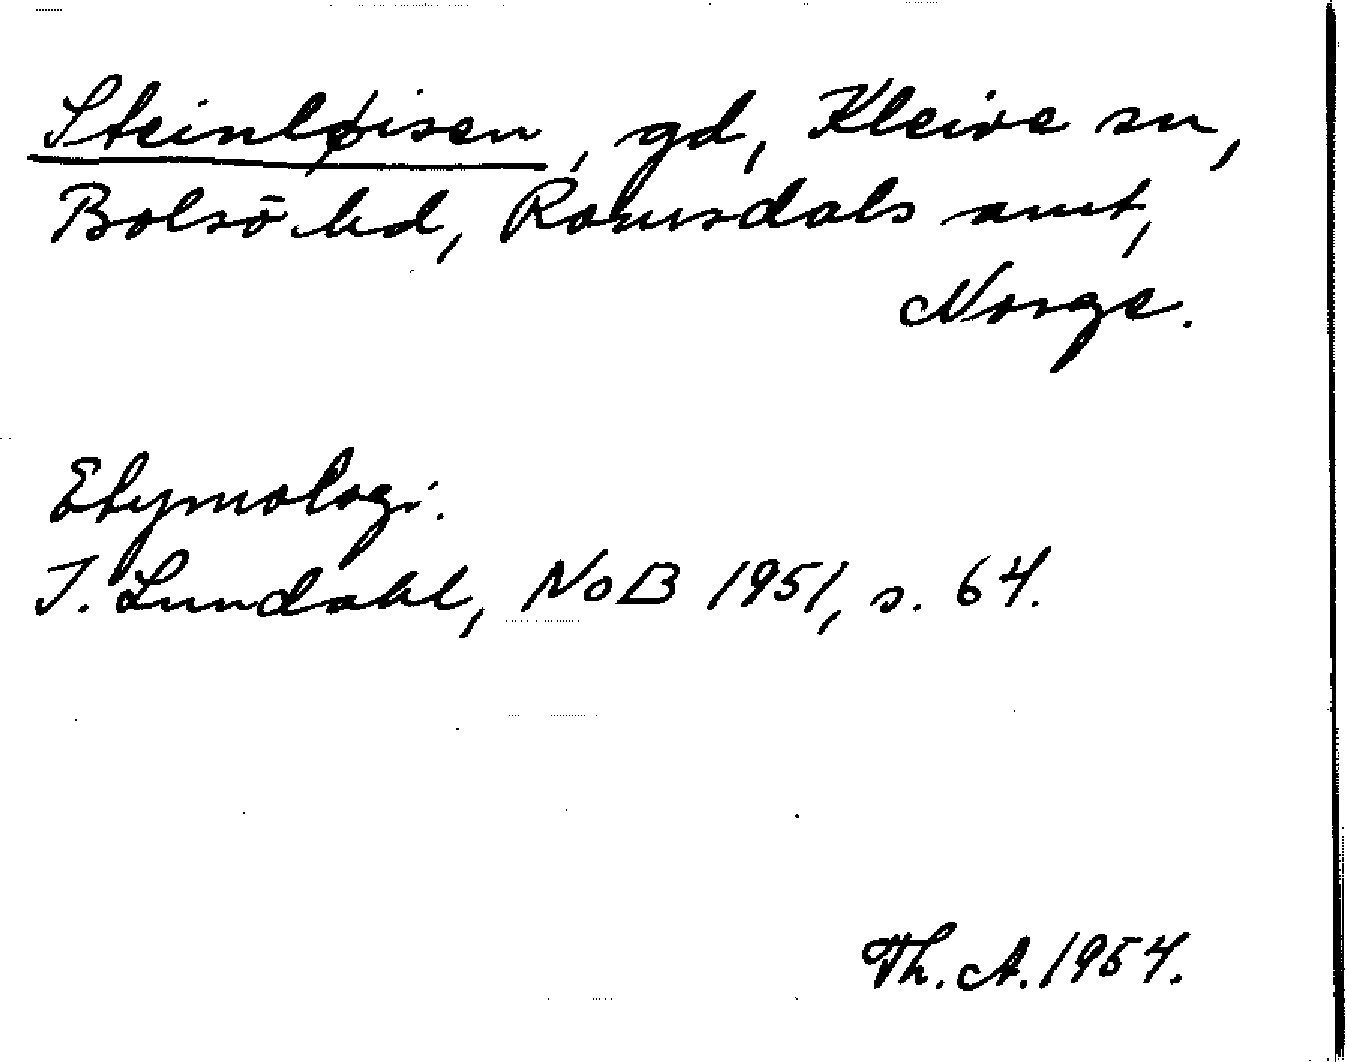 Steinløisen, gd, Kleive sn,
Bolsö hd, Romsdals amt,
Norge.
Etymologi.
I. Lundahl, NoB 1951, s. 64.
Th. A. 1954.